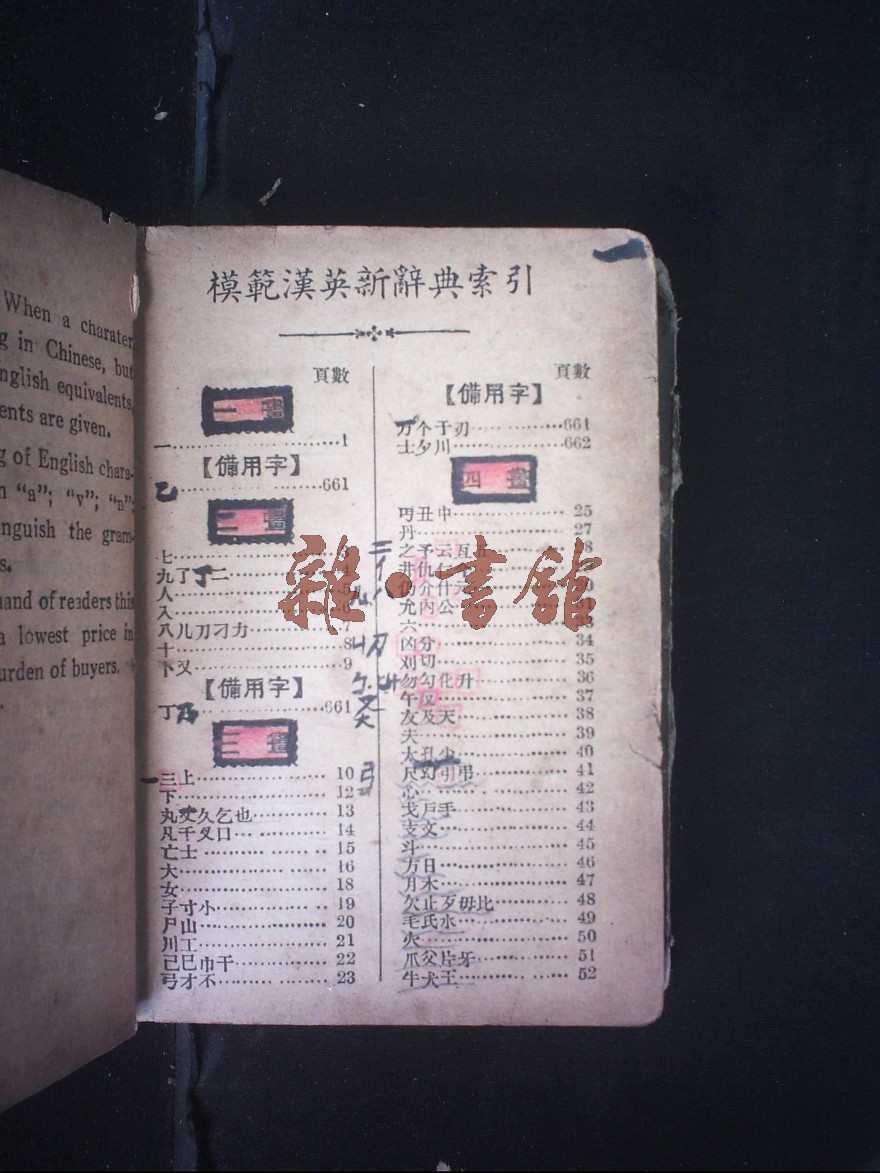 When a charater
g in Chinese, but
nglish equivalents,
ents are given.
g of English chara-
n “a”; “v”; “n”;
nguish the gram-
s.
and of readers this
a lowest price in
urden of buyers.
模範漢英新辭典索引
頁數
一畫
一 1
【備用字】
乙 661
二畫
七 3
九了丁二
人
入
八儿刀刁力 7
十 8
卜又 9
【備用字】
丁乃 661
三畫
三上 10
下 12
丸文久乞也 13
凡千叉口 14
亡士 15
大 16
女 18
子寸小 19
尸山 20
川工 21
已巳巾干 22
弓才不 23
頁數
【備用字】
万个于刃 661
士夕川 662
四畫
丏丑中 25
丹 27
之予云互
井仇
介什
允內公
六 33
凶分 34
刈切 35
勿勾化升 36
午 37
友及天 38
夫 39
太孔少 40
尺幻引弔 41
心 42
戈戶手 43
支文 44
斗 45
方日 46
月木 47
欠止歹毋比 48
毛氏水 49
火 50
爪父片牙 51
牛犬王 52
弓
雜·書館